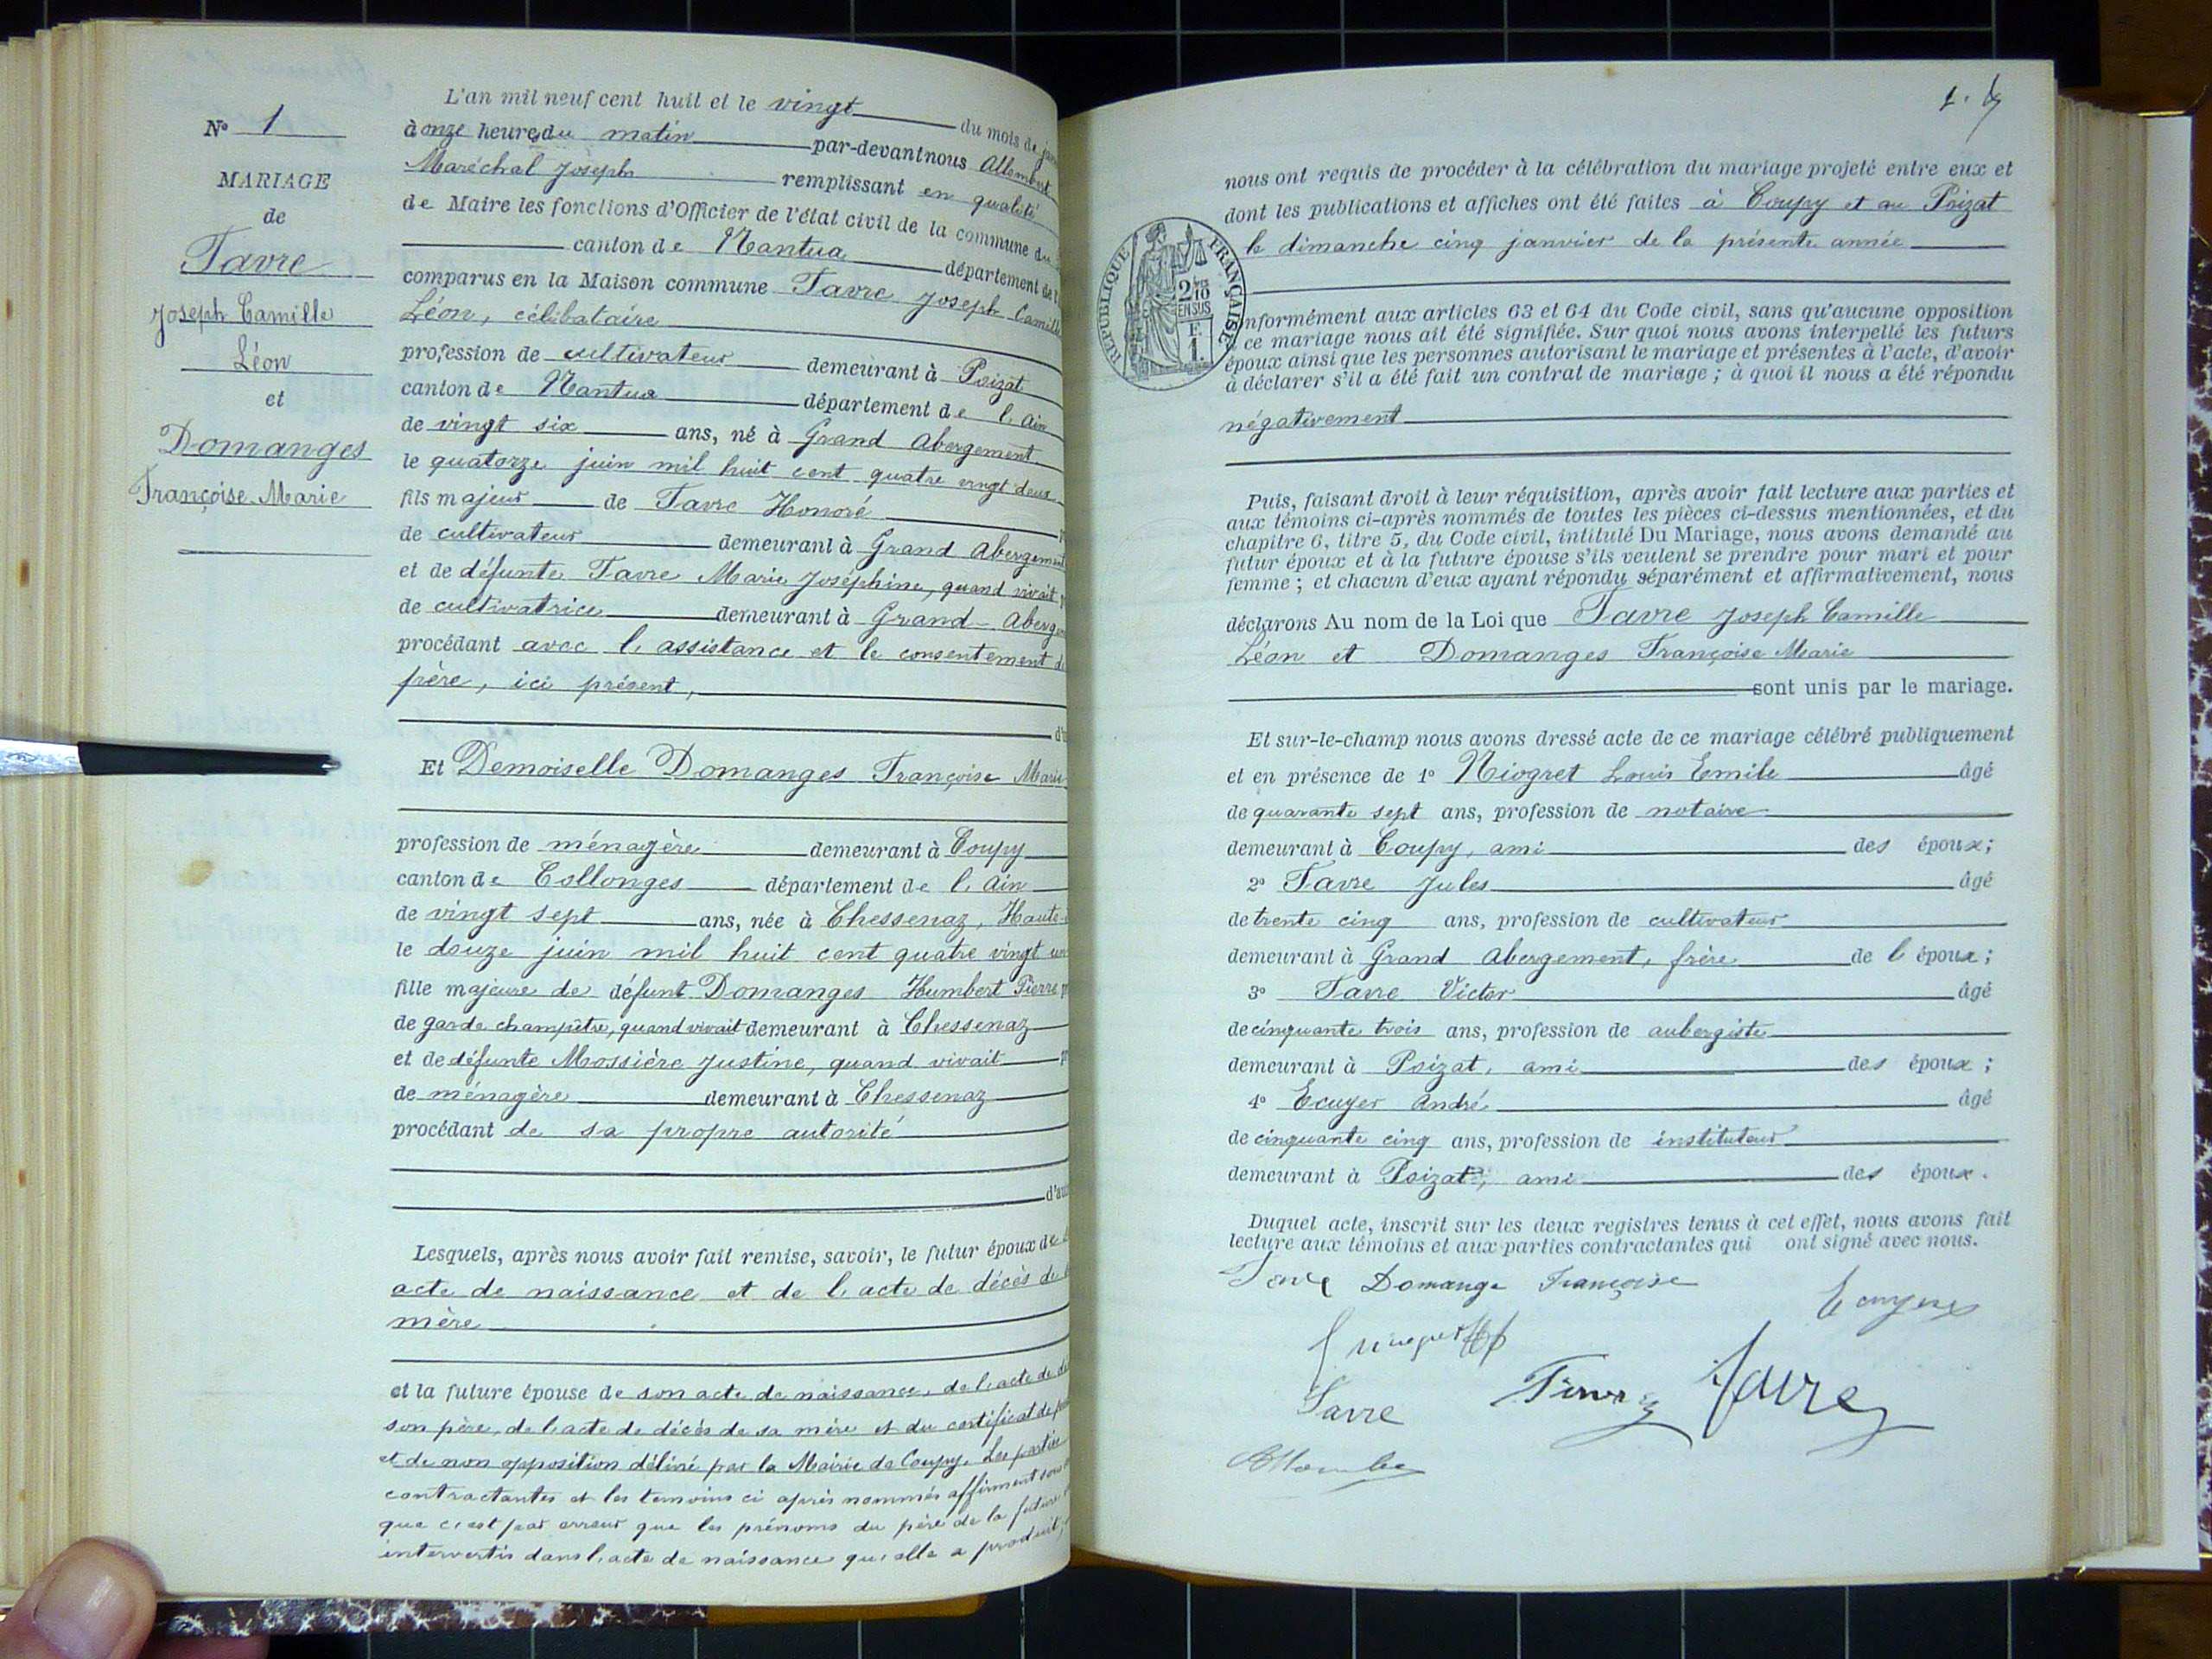 N° 1
MARIAGE
de
Favre
Joseph Camille
Léon
et
Domanges
Françoise Marie
L'an mil neuf cent huit et le vingt du mois de
à onze heures du matin par-devant nous
Maréchal Joseph remplissant en qualité
de Maire les fonctions d'Officier de l'état civil de la commune du
canton de Nantua département de
comparus en la Maison commune Favre Joseph Camille
Léon, célibataire
profession de cultivateur demeurant à Poizat
canton de Nantua département de l'Ain
de vingt six ans, né à Grand Abergement
le quatorze juin mil huit cent quatre vingt deux
fils majeur de Favre Honoré
de cultivateur demeurant à Grand Abergement
et de défunte Favre Marie Joséphine, quand vivait
de cultivatrice demeurant à Grand-
procédant avec l'assistance et le consentement
frère, ici présent,
Et Demoiselle Domanges Françoise Marie
profession de ménagère demeurant à Coupy
canton de Collonges département de l'Ain
de vingt sept ans, née à Chessenaz, Haute-
le douze juin mil huit cent quatre vingt
fille majeure de défunt Domanges Humbert Pierre
de garde champêtre, quand vivait demeurant à Chessenaz
et de défunte Mossière Justine, quand vivait
de ménagère demeurant à Chessenaz
procédant de sa propre autorité
Lesquels, après nous avoir fait remise, savoir, le futur époux de
acte de naissance et de l'acte de décès de
mère
et la future épouse de son acte de naissance, de l'acte de
son père, de l'acte de décès de sa mère et du certificat de
et de non opposition délivré par la Mairie de Coupy. Les parties
contractantes et les temoins ci après nommés affirment sous
que c'est par erreur que les prénoms du père de la future
intervertis dans l'acte de naissance qu'elle a produit
nous ont requis de procéder à la célébration du mariage projeté entre eux et
dont les publications et affiches ont été faites à Coupy et au Poizat
le dimanche cinq janvier de la présente année
RÉPUBLIQUE FRANÇAISE
2/10 EN SUS
F.
1.
nformément aux articles 63 et 64 du Code civil, sans qu'aucune opposition
ce mariage nous ait été signifiée. Sur quoi nous avons interpellé les futurs
époux ainsi que les personnes autorisant le mariage et présentes à l'acte, d'avoir
à déclarer s'il a été fait un contrat de mariage ; à quoi il nous a été répondu
négativement
Puis, faisant droit à leur réquisition, après avoir fait lecture aux parties et
aux témoins ci-après nommés de toutes les pièces ci-dessus mentionnées, et du
chapitre 6, titre 5, du Code civil, intitulé Du Mariage, nous avons demandé au
futur époux et à la future épouse s'ils veulent se prendre pour mari et pour
femme ; et chacun d'eux ayant répondu séparément et affirmativement, nous
déclarons Au nom de la Loi que Favre Joseph Camille
Léon et Domanges Françoise Marie
sont unis par le mariage.
Et sur-le-champ nous avons dressé acte de ce mariage célébré publiquement
et en présence de 1° Niogret Louis Emile âgé
de quarante sept ans, profession de notaire
demeurant à Coupy, ami des époux;
2° Favre Jules âgé
de trente cinq ans, profession de cultivateur
demeurant à Grand Abergement, frère de l'époux;
3° Favre Victor âgé
de cinquante trois ans, profession de aubergiste
demeurant à Poizat, ami des époux;
4° Ecuyer André âgé
de cinquante cinq ans, profession de instituteur
demeurant à Poizat, ami des époux.
Duquel acte, inscrit sur les deux registres tenus à cet effet, nous avons fait
lecture aux témoins et aux parties contractantes qui ont signé avec nous.
Favre Domange Françoise
Ecuyer
Favre Favre